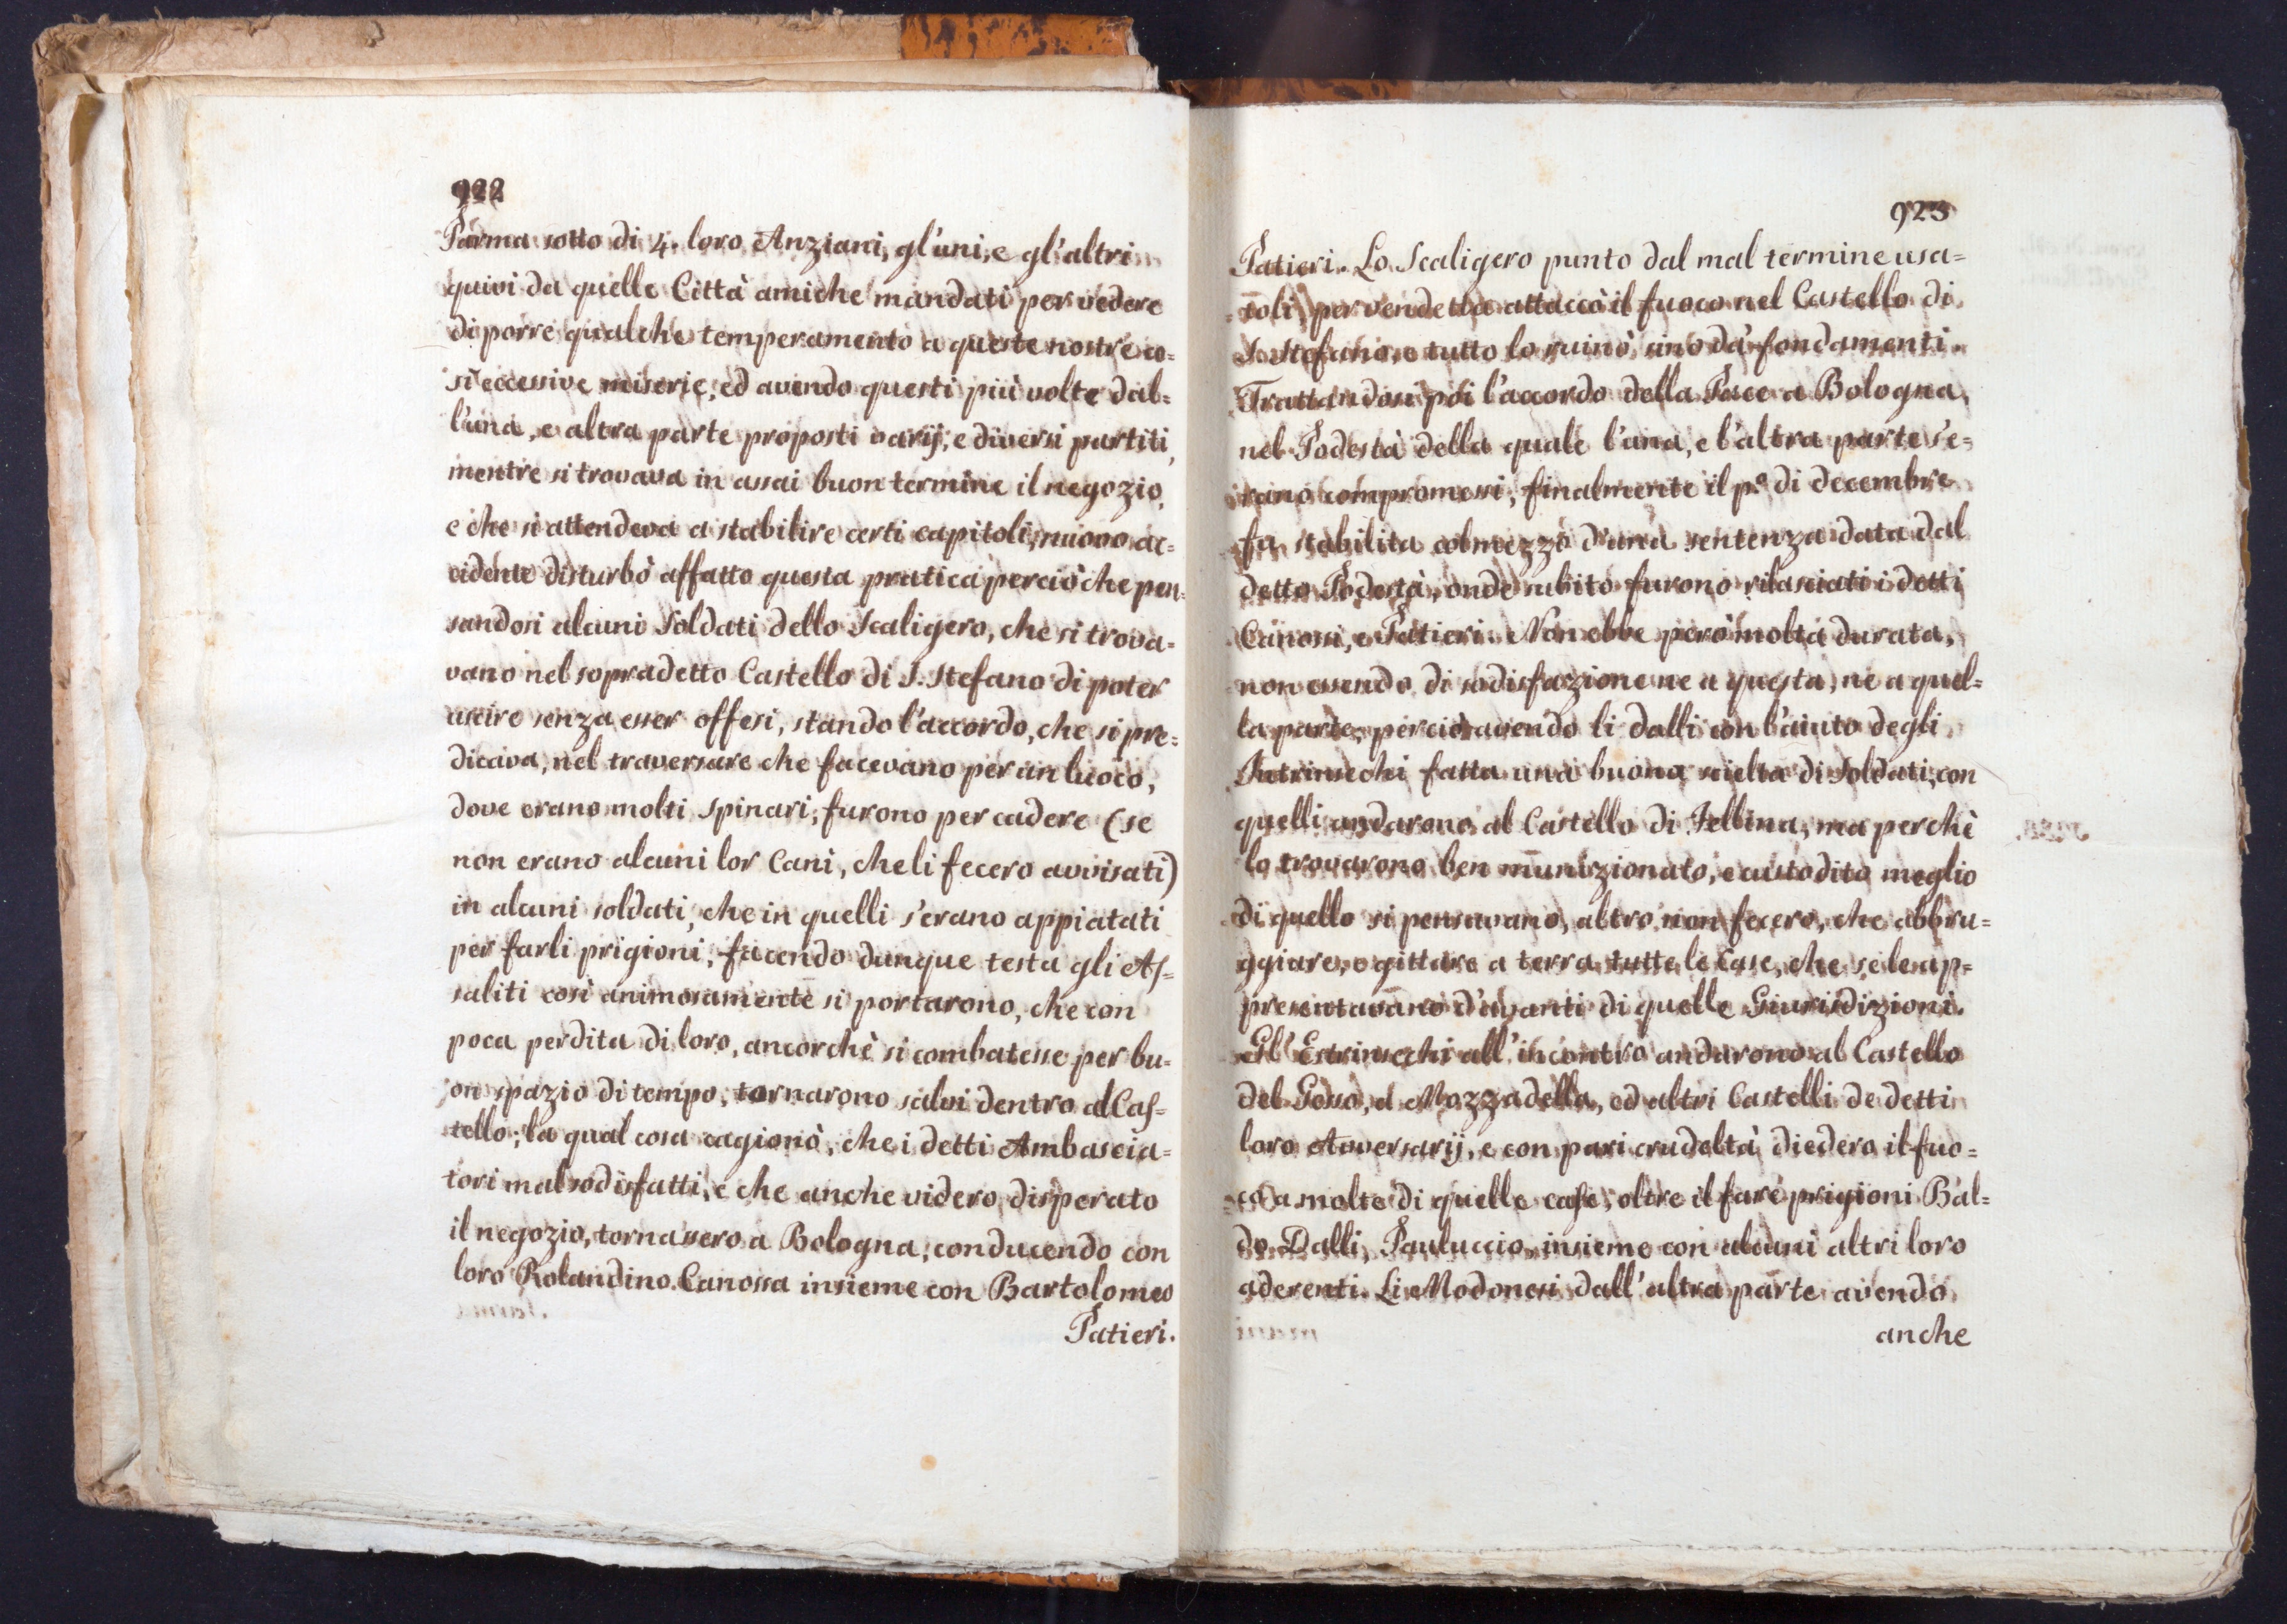 922
Parma sotto di 4. loro Anziani, gl'uni, e gl'altri
quivi da quelle Città amiche mandati per vedere
di porre qualche temperamento a queste nostre co=
si eccessive miserie; ed avendo questi più volte dal=
l'una, e altra parte proposti varij, e diversi partiti,
mentre si trovava in assai buon termine il negozio,
e che si attendeva a stabilire certi capitoli, nuovo ac=
cidente disturbò affatto questa pratica perciò che pen=
sandosi alcuni Soldati dello Scaligero, che si trova=
vano nel sopradetto Castello di S. Stefano di poter
uscire senza esser offesi, stando l'accordo, che si pre=
dicava, nel traversare che facevano per un luoco,
dove erano molti spinari, furono per cadere (se
non erano alcuni lor Cani, che li fecero avvisati)
in alcuni soldati, che in quelli s'erano appiatati
per farli prigioni; facendo dunque testa gli As=
saliti così animosamente si portarono, che con
poca perdita di loro, ancorchè si combatesse per bu=
on spazio di tempo, tornarono salvi dentro al Cas=
tello; la qual cosa cagionò, che i detti Ambascia=
tori mal sodisfatti, e che anche videro disperato
il negozio, tornassero a Bologna, conducendo con
loro Rolandino Canossa insieme con Bartolomeo
Patieri.
923
Patieri. Lo Scaligero punto dal mal termine usa=
toli, per vendetta attaccò il fuoco nel Castello di
S. Stefano, e tutto lo ruinò sino da' fondamenti.
Trattandosi poi l'accordo della Pace a Bologna,
nel Podestà della quale l'una, e l'altra parte s'e=
rano compromessi, finalmente il p.º di decembre
fu stabilita col mezzo d'una sentenza data dal
detto Podestà, onde subito furono rilasciati i detti
Canossi, e Patieri. Non ebbe però molta durata,
non essendo di sodisfazione ne a questa, ne a quel=
la parte, perciò avendo li dalli con l'aiuto degli
Intrinsechi fatta una buona scielta di Soldati, con
quelli andarono al Castello di Fellina, ma perchè
lo trovarono ben munizionato, e custodito meglio
di quello si pensavano, altro non fecero, che abbru=
ggiare, e gittare a terra tutte le Case, che se le ap=
presentavano d'avanti di quelle Giurisdizioni.
Gl' Estrinsechi all'incontro andarono al Castello
del Gesso, a Mozzadella, ed altri Castelli de detti
loro Aversarij, e con pari crudeltà diedero il fuo=
co a molte di quelle case, oltre il fare prigioni Bal=
do Dalli, Pauluccio, insieme con alcuni altri loro
aderenti. Li Modonesi dall'altra parte avendo
anche